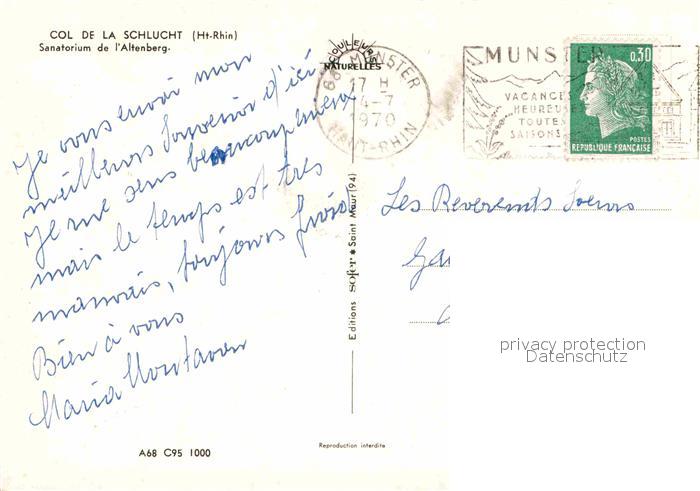 COL DE LA SCHLUCHT (Ht-Rhin)
Sanatorium de l'Altenberg.
Je vous envoi mon
meilleurs souvenir d'ici
Je me sens beaucoup mieux
mais le temps est très
mauvais, toujours froid
Bien à vous
Maria
A68 C95 1000
Editions sofer ★ Saint Maur (94)
Reproduction interdite
COULEURS
NATURELLES
68 MUNSTER
17 H
4-7
1970
HAUT-RHIN
MUNSTER
VACANCES
HEUREUSES
TOUTES
SAISONS
0,30
POSTES
REPUBLIQUE FRANÇAISE
Les Reverents Soeurs
privacy protection
Datenschutz